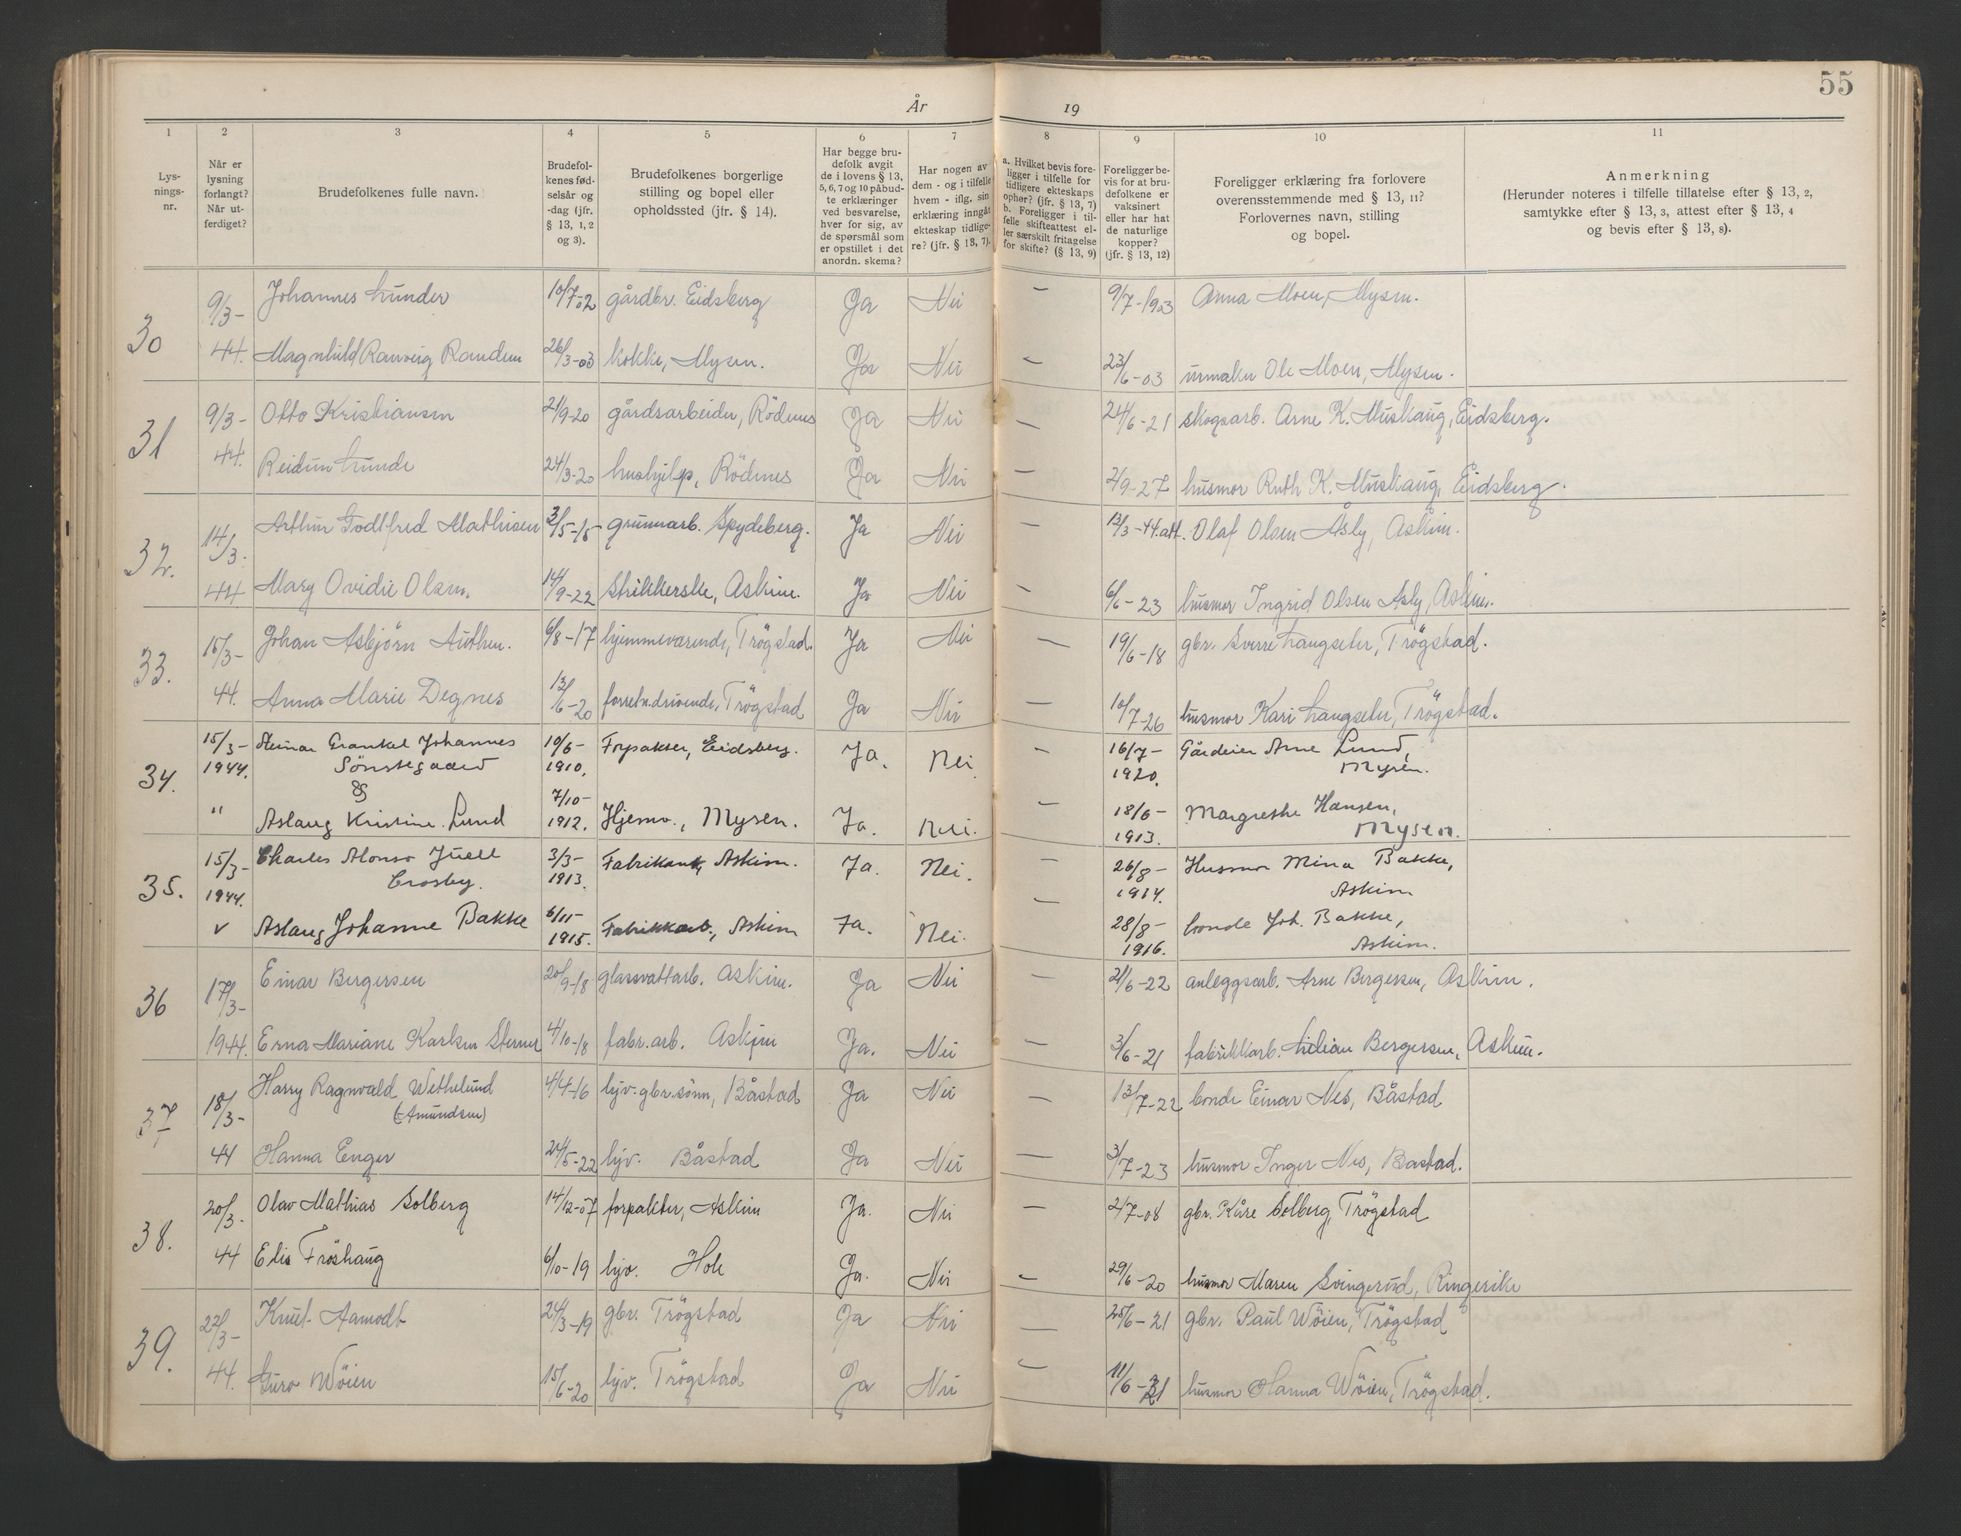 55
År 19
1 2 3 4 5 6 7 8 9 10 11
Lys-
nings-
nr.
Når er
lysning
forlangt?
Når ut-
ferdiget?
Brudefolkenes fulle navn.
Brudefol-
kenes fød-
selsår og
-dag (jfr.
§ 13, 1, 2
og 3).
Brudefolkenes borgerlige
stilling og bopel eller
opholdssted (jfr. § 14).
Har begge bru-
defolk avgit
de i lovens § 13,
5, 6, 7 og 10 påbud-
te erklæringer
ved besvarelse,
hver for sig, av
de spørsmål som
er opstillet i det
anordn. skema?
Har nogen av
dem - og i tilfelle
hvem - iflg. sin
erklæring inngått
ekteskap tidlige-
re? (jfr. § 13, 7).
a. Hvilket bevis fore-
ligger i tilfelle for
tidligere ekteskaps
ophør? (jfr. § 13, 7)
b. Foreligger i til-
felle skifteattest el-
ler særskilt fritagelse
for skifte? (§ 13, 9)
Foreligger be-
vis for at bru-
defolkene er
vaksinert
eller har hat
de naturlige
kopper?
(jfr. § 13, 12)
Foreligger erklæring fra forlovere
overensstemmende med § 13, 11?
Forlovernes navn, stilling
og bopel.
Anmerkning
(Herunder noteres i tilfelle tillatelse efter § 13, 2,
samtykke efter § 13, 3, attest efter § 13, 4
og bevis efter § 13, 8).
30 9/3- Johannes Lunder 10/7-02 gårdbr. Eidsberg Ja Nei — 9/7-1903 Anna Moen, Mysen.
44. Magnhild Ranveig Randem 26/3-03 kokke, Mysen. Ja Nei — 23/6-03 urmaker Ole Moen, Mysen.
31 9/3- Otto Kristiansen 21/9-20 gårdsarbeider, Rödenes Ja Nei — 24/6-21 skogsarb. Arne K. Muskaug, Eidsberg.
44. Reidun Lunde 24/3-20 hushjelp, Rödenes Ja Nei — 2/9-27 husmor Ruth K. Muskaug, Eidsberg.
32. 14/3. Arthur Godtfred Mathisen 3/5-15- grunnarb. Spydeberg. Ja Nei — 13/3-44.att. Olaf Olsen Åsly, Askim.
44 Mary Ovidie Olsen. 14/9-22 Strikkerske, Askim. Ja Nei — 6/6-23 husmor Ingrid Olsen Åsly, Askim.
33. 15/3- Johan Asbjörn Authen. 6/8-17 hjemmeværende, Trögstad. Ja Nei — 19/6-18 gbr. Sverre Langseter, Trögstad.
44. Anna Marie Degnes 13/6-20 forretn.drivende, Trögstad Ja Nei — 10/7-26 husmor Kari Langseter, Trögstad.
34. 15/3- Steinar Grankel Johannes 10/6- Forpakter, Eidsberg. Ja. Nei. — 16/7- Gårdeier Arne Lund,
1944. Sønstegaard 1910. 1920. Mysen.
&
" Aslaug Kristine Lund 7/10-1912. Hjemv., Mysen. Ja. Nei. — 18/6-1913. Margrethe Hansen,
Mysen.
35. 15/3- Charles Alonso Juell 3/3- Fabrikant, Askim. Ja. Nei. — 26/8- Husmor Mina Bakke,
1944. Crosby. 1913. 1914. Askim
v Aslaug Johanne Bakke 6/11-1915. Fabrikkarb., Askim Ja. Nei. — 28/8-1916. bonde Joh. Bakke,
Askim.
36 17/3- Einar Bergersen 20/9-18 glassvattarb. Askim. Ja Nei — 21/6-22 anleggsarb. Arne Bergersen, Askim.
1944. Erna Mariane Karlsen Sterner 4/10-18 fabr.arb. Askim Ja. Nei — 3/6-21 fabrikkarb. Lilian Bergersen, Askim.
37 18/3- Harry Ragnvald Wethelund 4/4-16 hjv. gbr.sönn, Båstad Ja Nei — 13/7-22 bonde Einar Nes, Båstad
(-Amundsen)
44 Hanna Enger 24/5-22 hjv. Båstad Ja Nei — 3/7-23 husmor Inger Nes, Båstad.
38. 20/3. Olav Mathias Solberg 14/12-07 forpakter, Askim Ja. Nei — 2/7-08 gbr. Kåre Solberg, Trögstad
44 Elis Fröshaug 6/10-19 hjv. Hole Ja. Nei — 29/6-20 husmor Maren Svingerud, Ringerike
39. 22/3- Knut Aamodt 24/3-19 gbr. Trögstad Ja Nei — 25/6-21 gbr. Paul Wöien, Trögstad
44. Guro Wöien 15/6-20 hjv. Trögstad Ja Nei — 11/6-21 husmor Hanna Wöien, Trögstad.